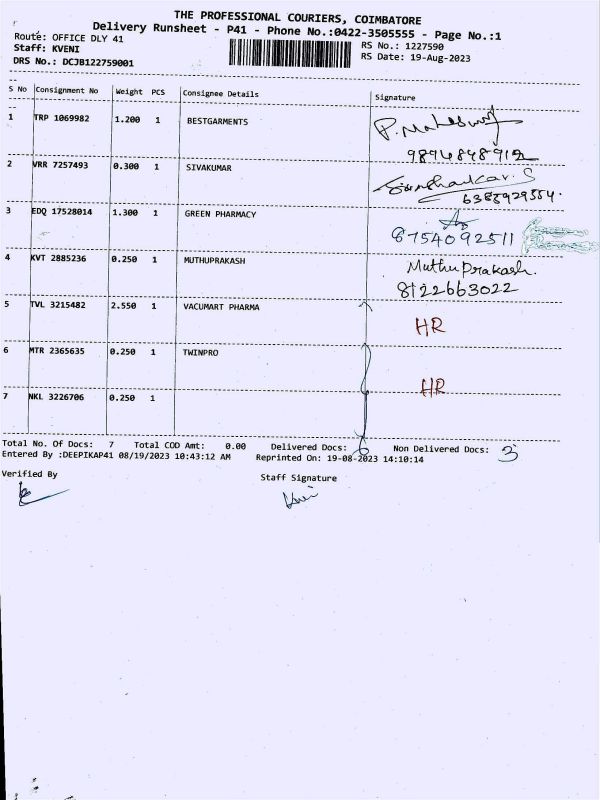 THE PROFESSIONAL COURIERS, COIMBATORE
Delivery Runsheet - P41 - Phone No.:0422-3505555 - Page No.:1
Route: OFFICE DLY 41
RS No.: 1227590
Staff: KVENI
RS Date: 19-Aug-2023
DRS No.: DCJB122759001
S No Consignment No Weight PCS Consignee Details Signature
1 TRP 1069982 1.200 1 BESTGARMENTS
9894848912
2 VRR 7257493 0.300 1 SIVAKUMAR
6383929554.
3 EDQ 17528014 1.300 1 GREEN PHARMACY
8754092511
4 KVT 2885236 0.250 1 MUTHUPRAKASH Muthu Prakash.
8122663022
5 TVL 3215482 2.550 1 VACUMART PHARMA
HR
6 MTR 2365635 0.250 1 TWINPRO
HR
7 NKL 3226706 0.250 1
Total No. Of Docs: 7 Total COD Amt: 0.00 Delivered Docs: Non Delivered Docs: 3
Entered By :DEEPIKAP41 08/19/2023 10:43:12 AM Reprinted On: 19-08-2023 14:10:14
Verified By
Staff Signature
Kveni